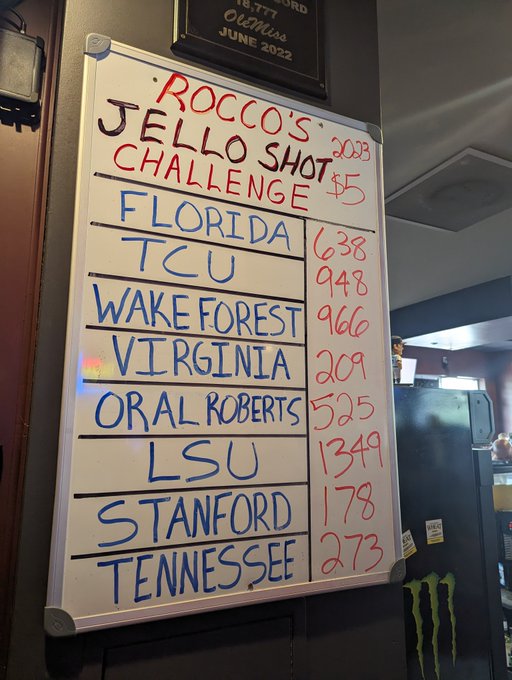 18,777
Ole Miss
JUNE 2022
ROCCO'S 2023
JELLO SHOT
CHALLENGE $5
FLORIDA 638
TCU 948
WAKE FOREST 966
VIRGINIA 209
ORAL ROBERTS 525
LSU 1349
STANFORD 178
TENNESSEE 273